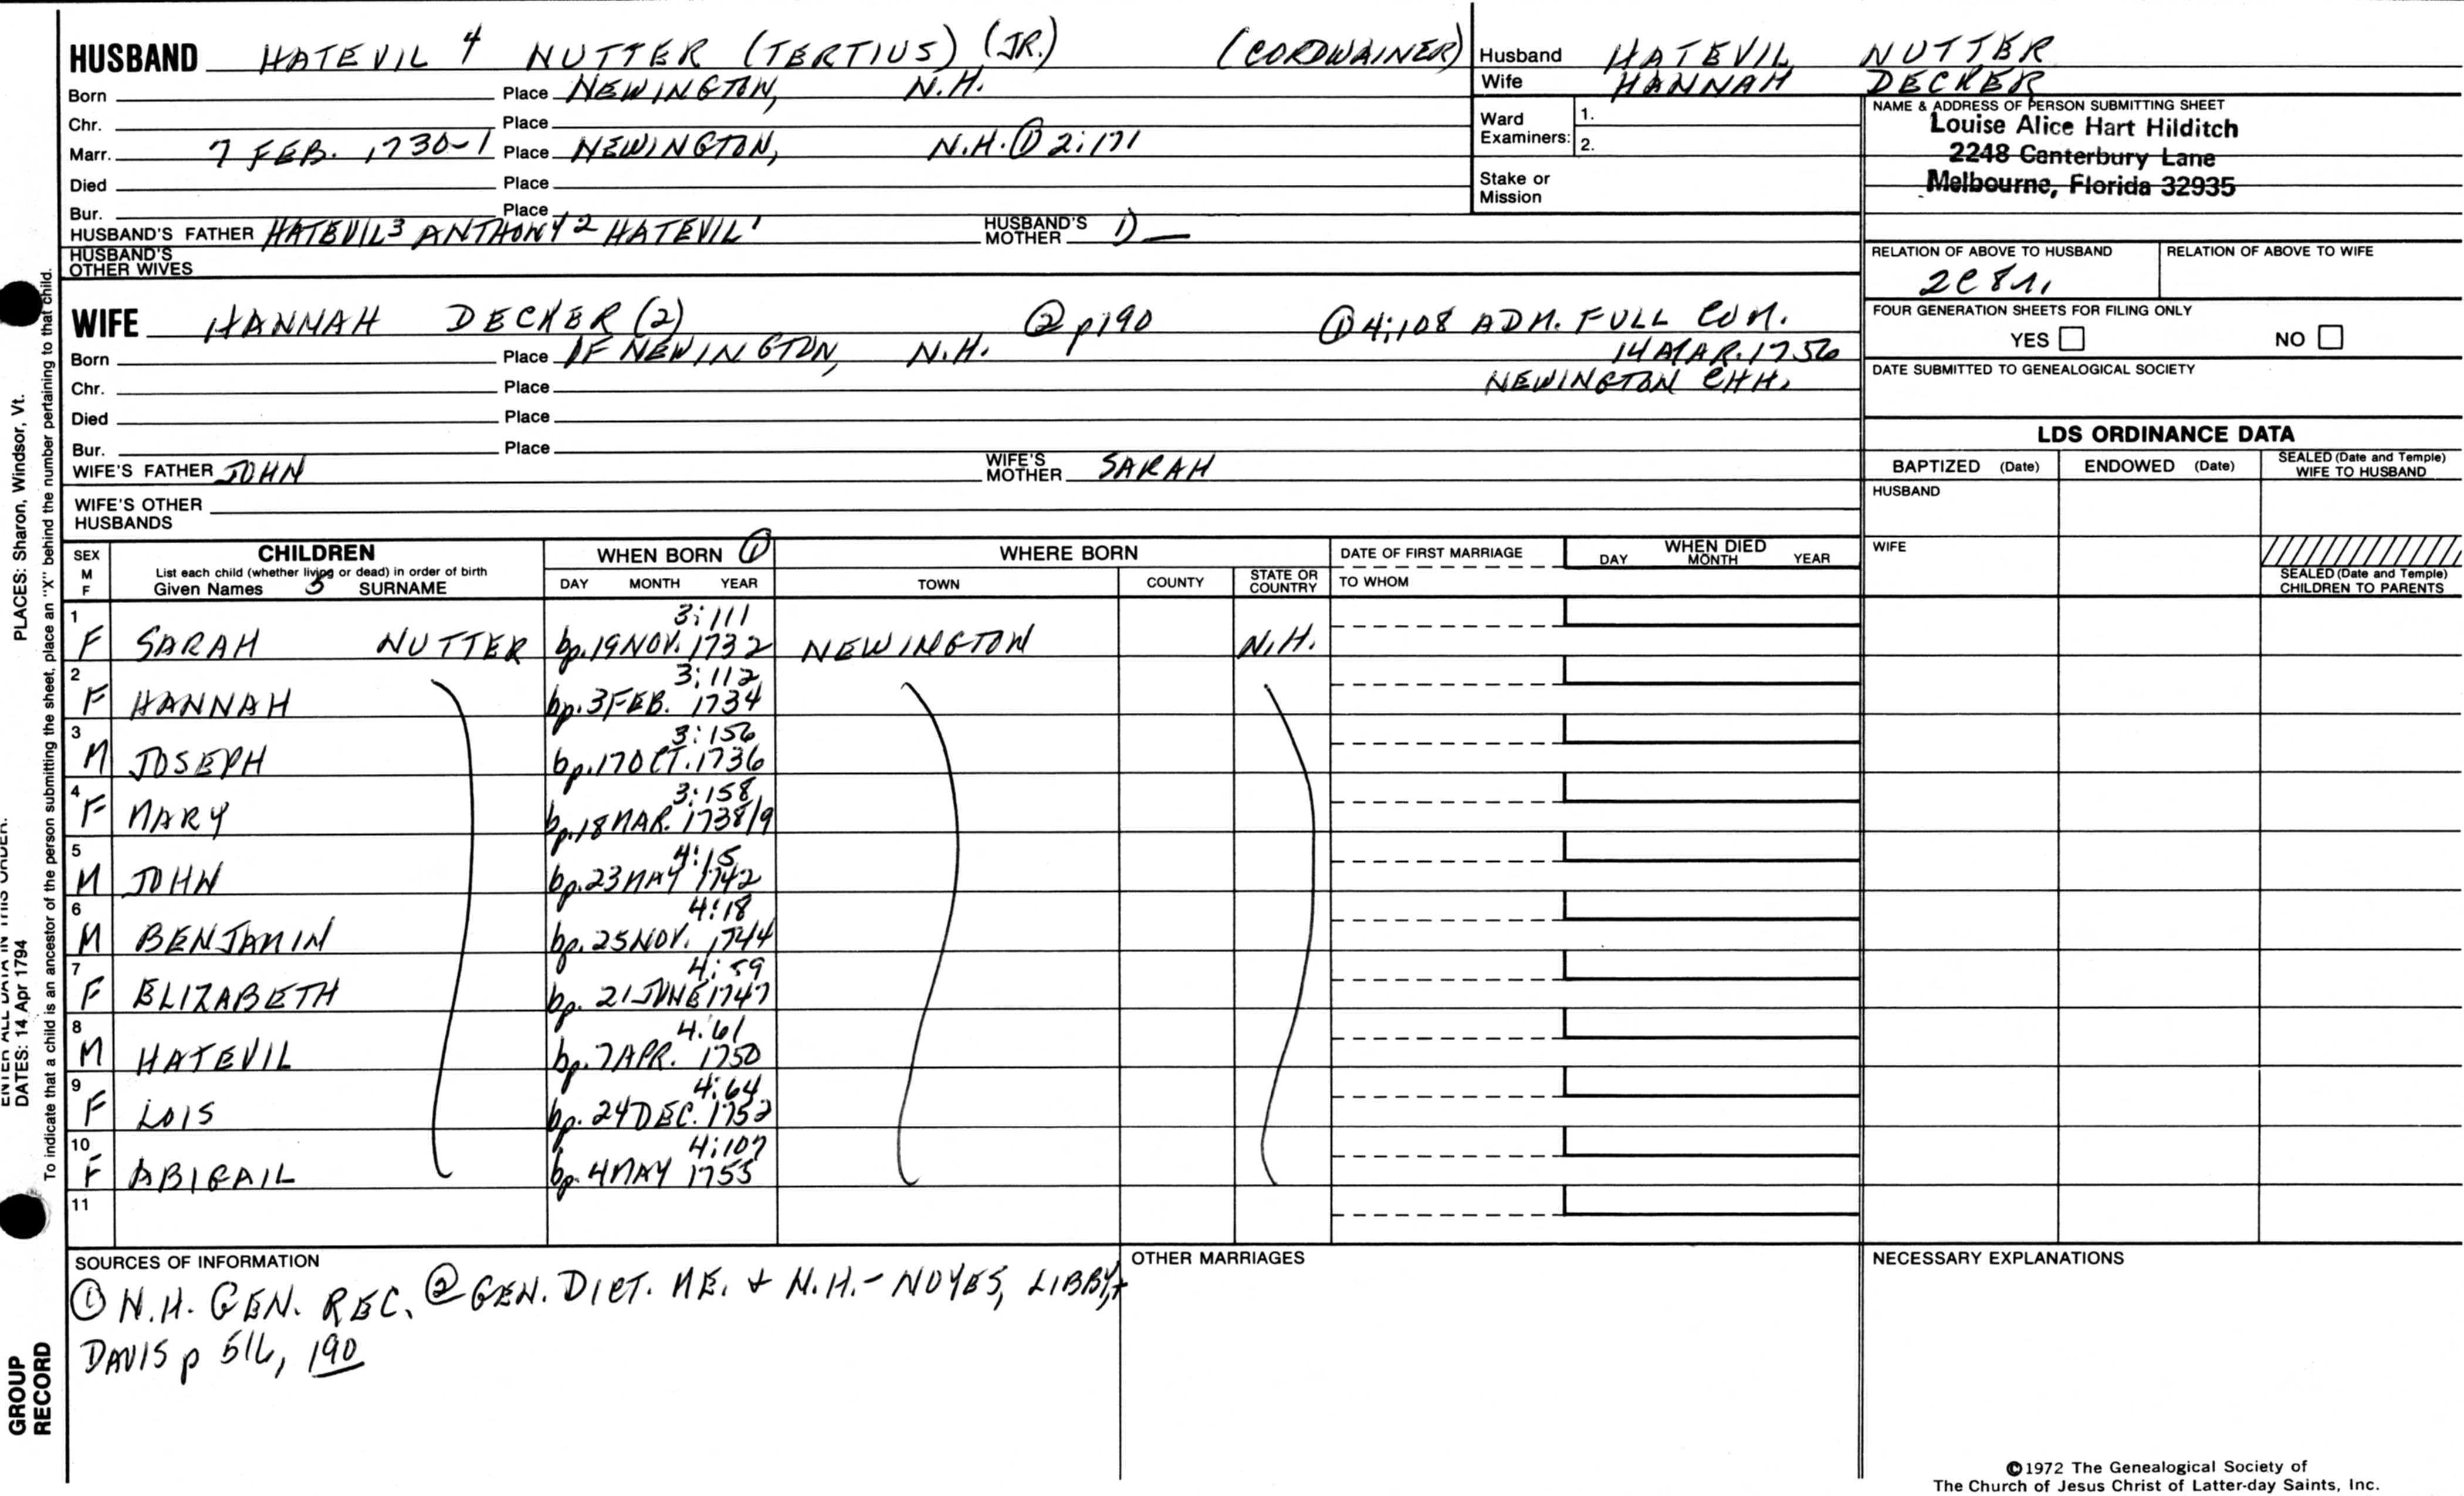 HUSBAND HATEVIL 4 NUTTER (TERTIUS) (JR.) (CORDWAINER)
Born Place NEWINGTON, N.H.
Chr. Place
Marr. 7 FEB. 1730-1 Place NEWINGTON, N.H. ① 2:171
Died Place
Bur. Place
HUSBAND'S FATHER HATEVIL3 ANTHONY2 HATEVIL1 HUSBAND'S MOTHER 1) —
HUSBAND'S OTHER WIVES
WIFE HANNAH DECKER (2) ② p190 ① 4:108 ADM. FULL COM.
Born Place OF NEWINGTON, N.H. 14 MAR. 1756
Chr. Place NEWINGTON CHH.
Died Place
Bur. Place
WIFE'S FATHER JOHN WIFE'S MOTHER SARAH
WIFE'S OTHER HUSBANDS
Husband HATEVIL NUTTER
Wife HANNAH DECKER
Ward Examiners: 1.
2.
Stake or Mission
NAME & ADDRESS OF PERSON SUBMITTING SHEET
Louise Alice Hart Hilditch
2248 Canterbury Lane
Melbourne, Florida 32935
RELATION OF ABOVE TO HUSBAND RELATION OF ABOVE TO WIFE
2C8r.
FOUR GENERATION SHEETS FOR FILING ONLY
YES NO
DATE SUBMITTED TO GENEALOGICAL SOCIETY
LDS ORDINANCE DATA
BAPTIZED (Date) ENDOWED (Date) SEALED (Date and Temple) WIFE TO HUSBAND
HUSBAND
WIFE
SEALED (Date and Temple) CHILDREN TO PARENTS
SEX M F
CHILDREN
List each child (whether living or dead) in order of birth
Given Names 5 SURNAME
WHEN BORN ①
DAY MONTH YEAR
WHERE BORN
TOWN COUNTY STATE OR COUNTRY
DATE OF FIRST MARRIAGE
TO WHOM
WHEN DIED
DAY MONTH YEAR
1 3:111
F SARAH NUTTER bp. 19 NOV. 1732 NEWINGTON N.H.
2 3:112
F HANNAH bp. 3 FEB. 1734
3 3:156
M JOSEPH bp. 17 OCT. 1736
4 3:158
F MARY bp. 18 MAR. 1738/9
5 4:15
M JOHN bp. 23 MAY 1742
6 4:18
M BENJAMIN bp. 25 NOV. 1744
7 4:59
F ELIZABETH bp. 21 JUNE 1747
8 4:61
M HATEVIL bp. 7 APR. 1750
9 4:64
F LOIS bp. 24 DEC. 1752
10 4:107
F ABIGAIL bp. 4 MAY 1755
11
SOURCES OF INFORMATION
① N.H. GEN. REC. ② GEN. DICT. ME. + N.H. - NOYES, LIBBY, +
DAVIS p 516, 190
OTHER MARRIAGES
NECESSARY EXPLANATIONS
©1972 The Genealogical Society of
The Church of Jesus Christ of Latter-day Saints, Inc.
PLACES: Sharon, Windsor, Vt.
To indicate that a child is an ancestor of the person submitting the sheet, place an "X" behind the number pertaining to that child.
ENTER ALL DATA IN THIS ORDER.
DATES: 14 Apr 1794
GROUP
RECORD